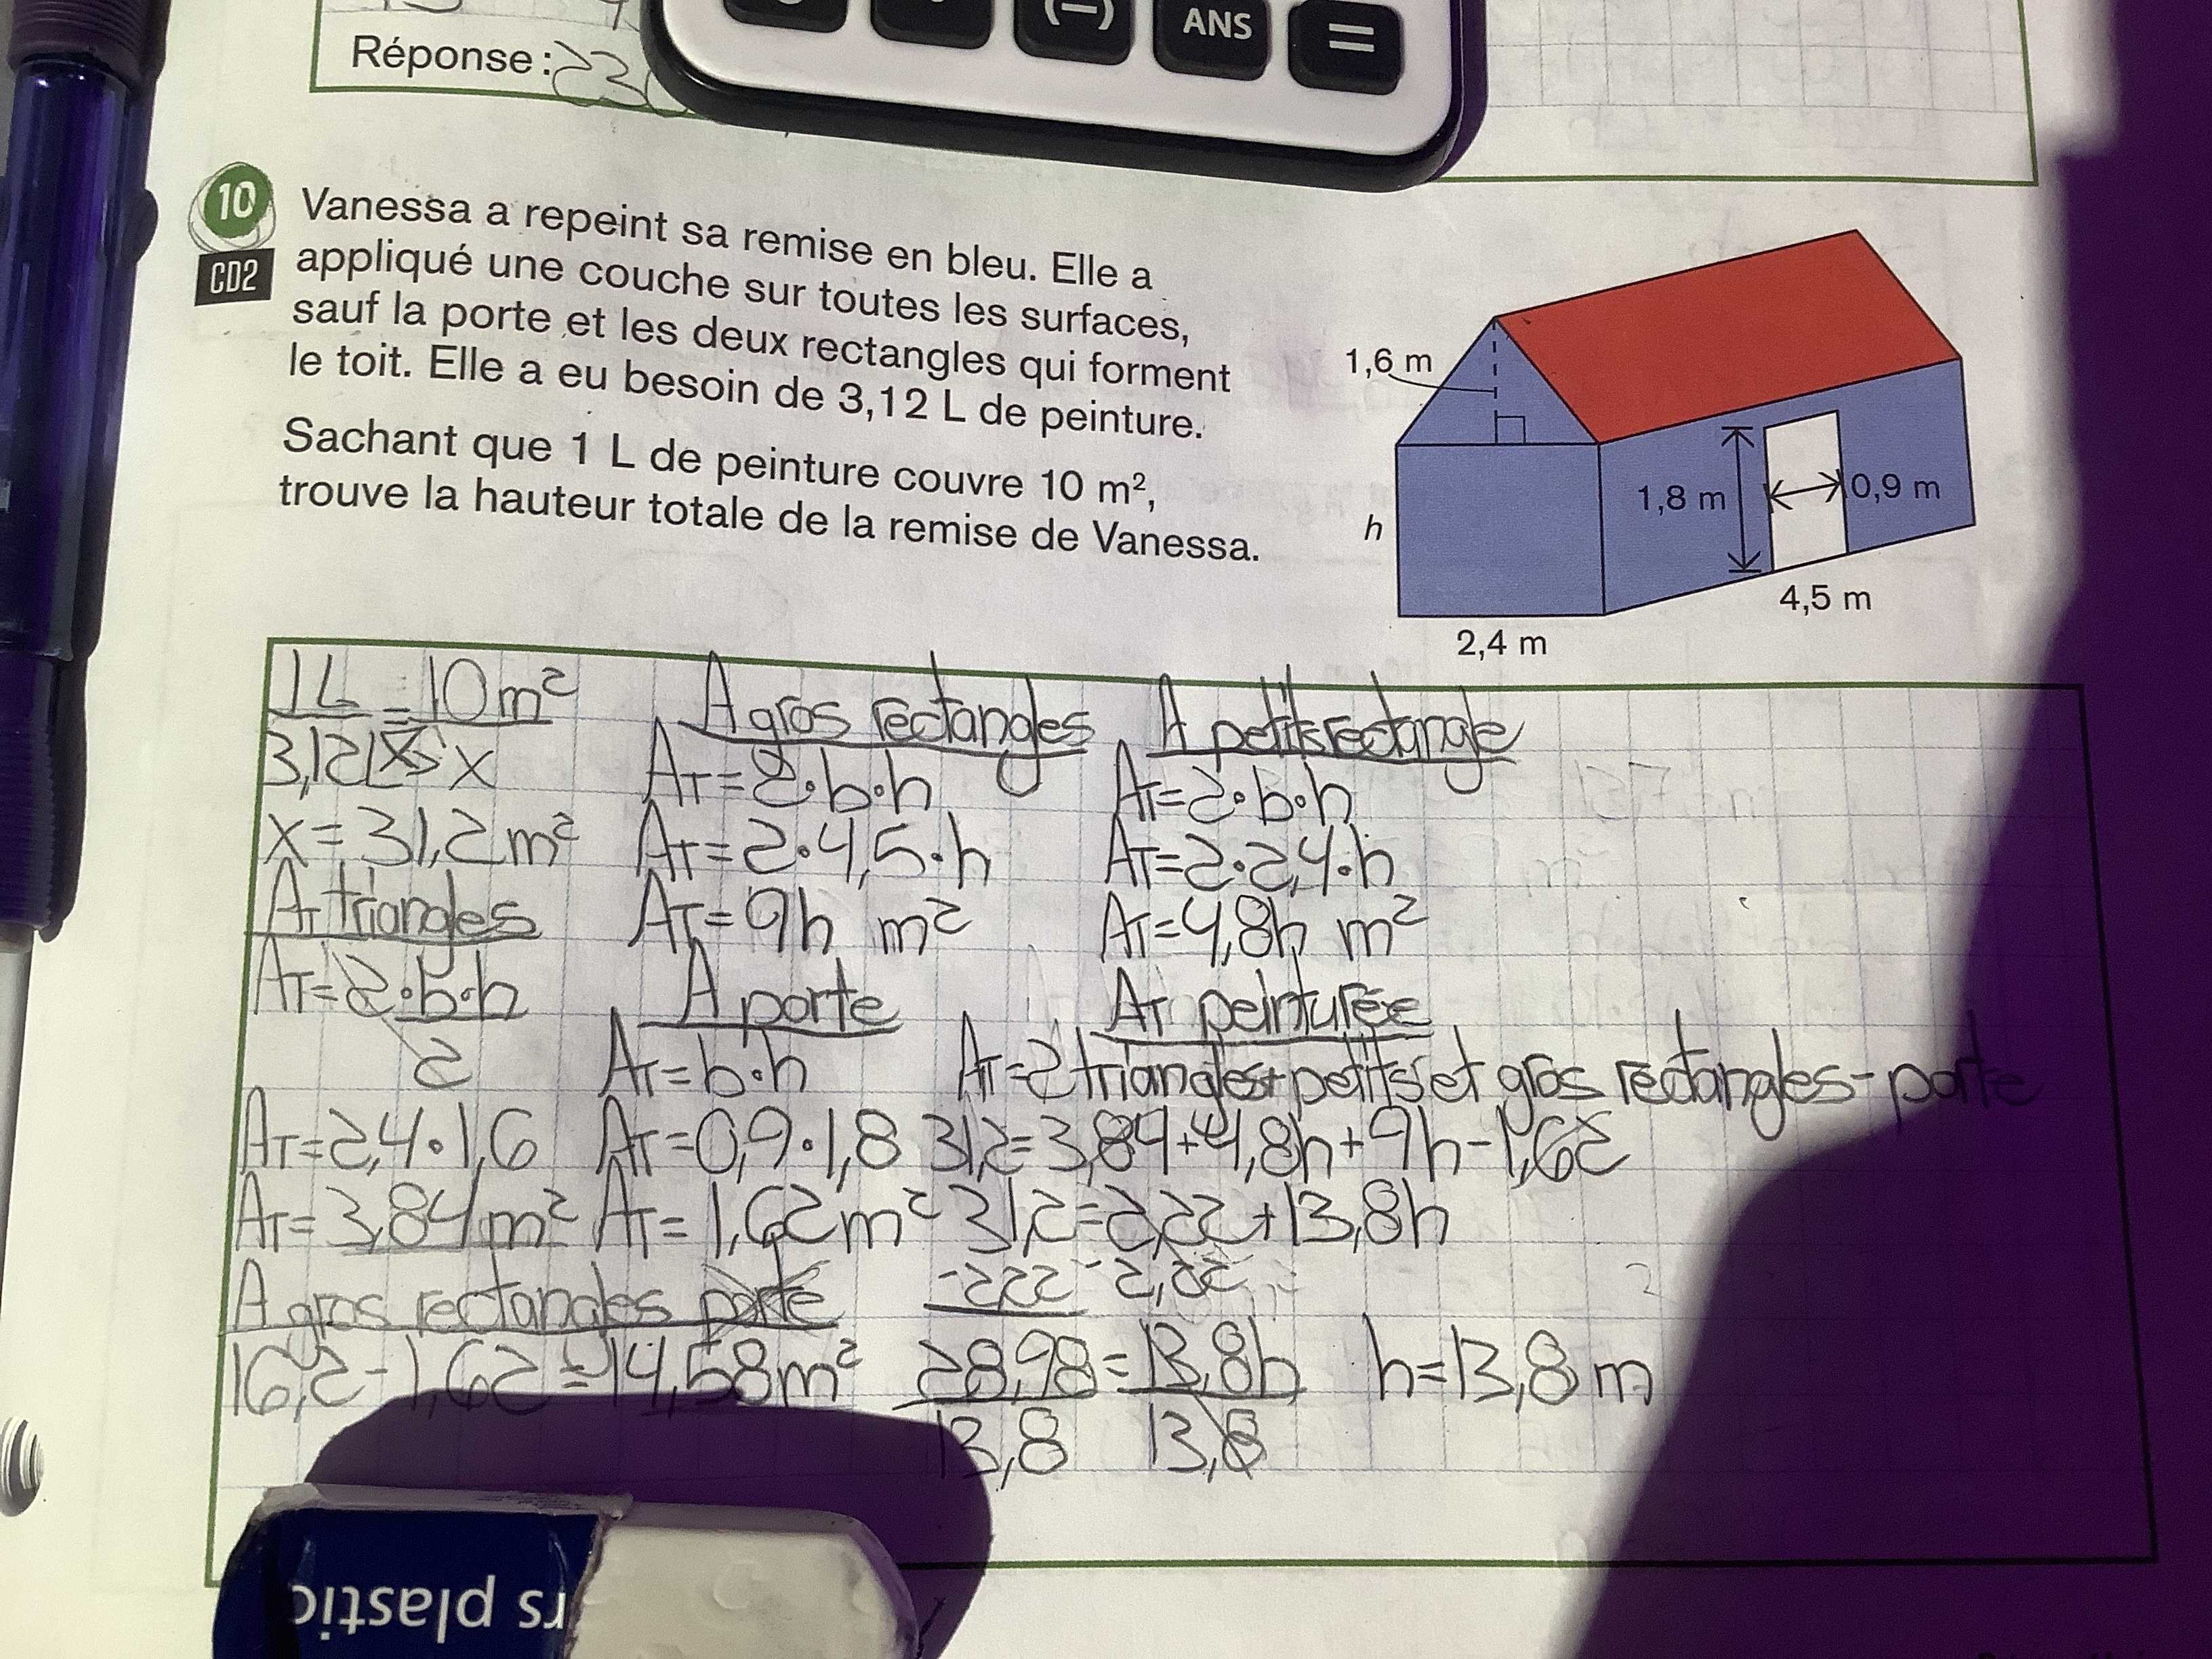 (−) ANS =
Réponse : 230
10
CD2
Vanessa a repeint sa remise en bleu. Elle a
appliqué une couche sur toutes les surfaces,
sauf la porte et les deux rectangles qui forment
le toit. Elle a eu besoin de 3,12 L de peinture.
Sachant que 1 L de peinture couvre 10 m²,
trouve la hauteur totale de la remise de Vanessa.
1,6 m
1,8 m
0,9 m
h
4,5 m
2,4 m
1L = 10m²
3,12L x
x = 31,2 m²
AT triangles
AT = 2·b·h
2
AT = 2,4·1,6
AT = 3,84 m²
A gros rectangles porte
16,2 - 1,62 = 14,58 m²
A gros rectangles
AT = 2·b·h
AT = 2·4,5·h
AT = 9h m²
A porte
AT = b·h
AT = 0,9·1,8
AT = 1,62 m²
A petits rectangle
AT = 2·b·h
AT = 2·2,4·h
AT = 4,8h m²
AT peinturée
AT = 2 triangles + petits et gros rectangles - porte
31,2 = 3,84 + 4,8h + 9h - 1,62
31,2 = 2,22 + 13,8h
-2,22 -2,22
28,98 = 13,8h
13,8 13,8
h = 13,8 m
rs plastic